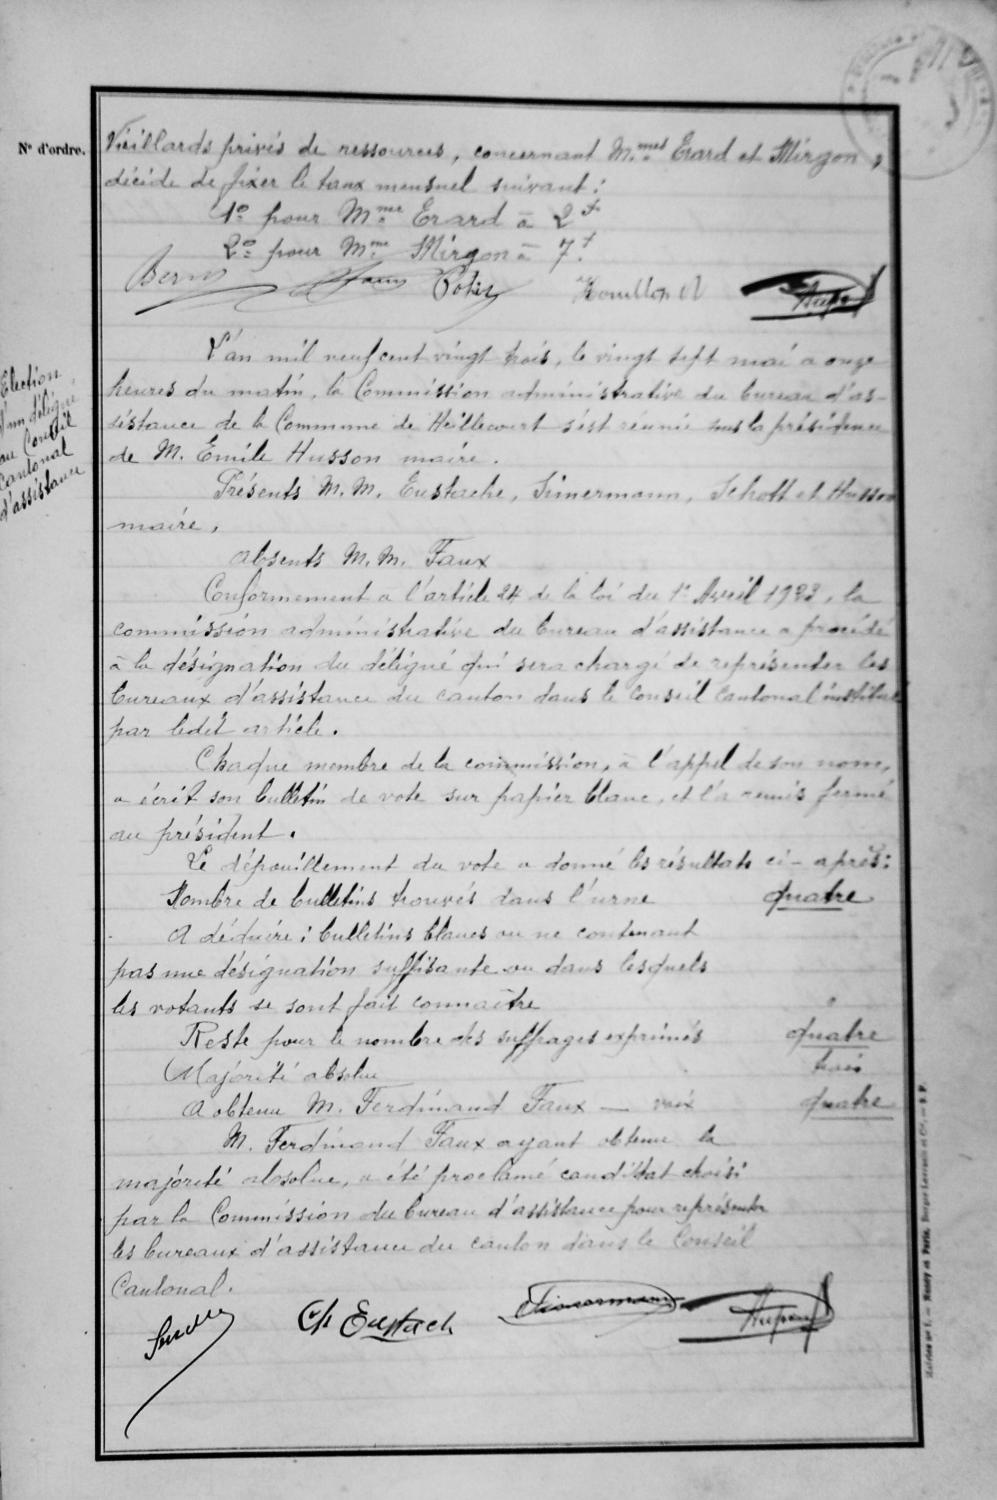 N° d'ordre.
Vieillards privés de ressources, concernant M.mes Erard et Mirgon,
décide de fixer le taux mensuel suivant :
1° pour Mme Erard à 2f
2° pour Mme Mirgon à 7f.
L'an mil neuf cent vingt trois, le vingt sept mai a onze
heures du matin, la Commission administrative du bureau d'as-
sistance de la Commune de Heillecourt s'est réunie sous la présidence
de M. Emile Husson maire.
Election
d'un délégué
au Conseil
cantonal
d'assistance
Présents M.M. Eustache, Simermann, Schott et Husson
maire,
absents M.M. Faux
Conformement a l'article 24 de la loi du 1er Avril 1923, la
commission administrative du bureau d'assistance a procédé
à la désignation du délégué qui sera chargé de représenter les
bureaux d'assistance du canton dans le conseil cantonal institué
par ledit article.
Chaque membre de la commission, à l'appel de son nom,
a écrit son bulletin de vote sur papier blanc, et l'a remis fermé
au président.
Le dépouillement du vote a donné les résultats ci-après :
Nombre de bulletins trouvés dans l'urne quatre
A déduire : bulletins blancs ou ne contenant
pas une désignation suffisante ou dans lesquels
les votants se sont fait connaître
Reste pour le nombre des suffrages exprimés quatre
Majorité absolue trois
A obtenu M. Ferdinand Faux — voix quatre
M. Ferdinand Faux ayant obtenu la
majorité absolue, a été proclamé candidat choisi
par la Commission du bureau d'assistance pour représenter
les bureaux d'assistance du canton dans le Conseil
Cantonal.
Ch Eustach